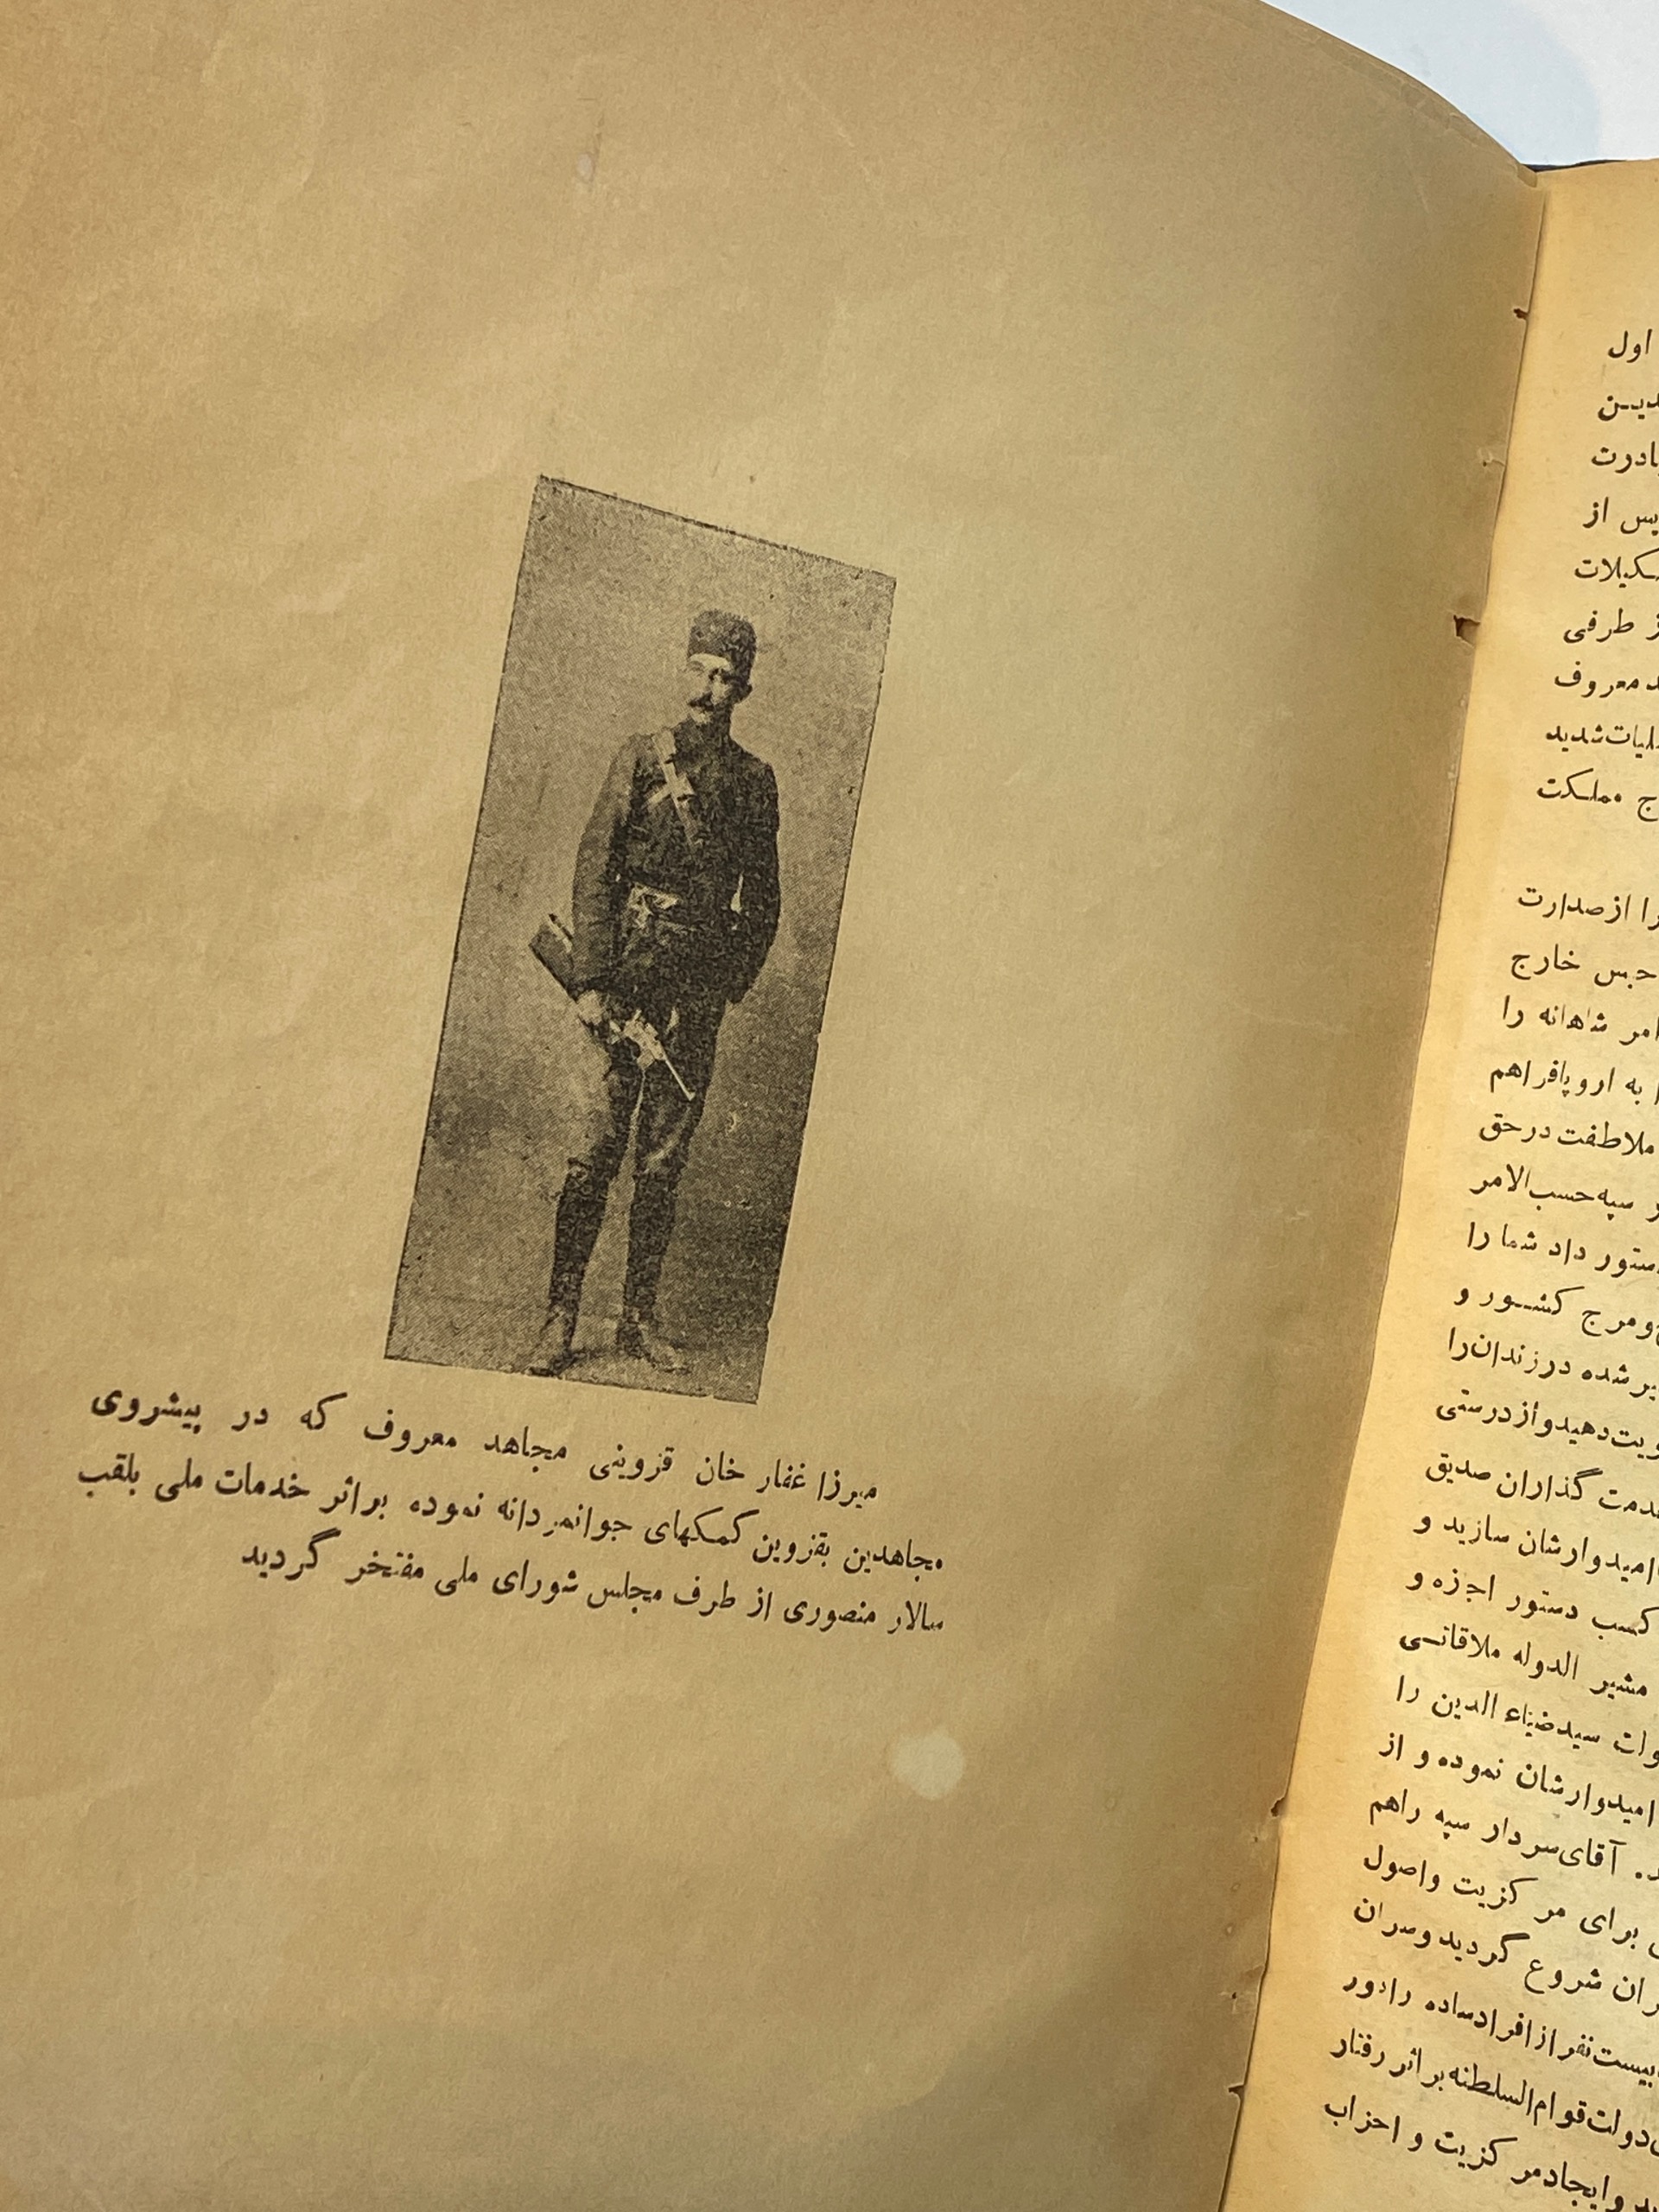 میرزا غفار خان قزوینی مجاهد معروف که در پیشروی
مجاهدین بقزوین کمکهای جوانمردانه نموده براثر خدمات ملی بلقب
سالار منصوری از طرف مجلس شورای ملی مفتخر گردید
اول
پس از
طرفی
معروف
شدید
مملکت
را از صدارت
حبس خارج
امر شاهانه را
به اروپا فراهم
ملاطفت در حق
سپه حسب‌الامر
دستور داد شما را
و مرج کشور و
شده در زندان را
دهید و از درستی
گذاران صدیق
امیدوارشان سازید و
کسب دستور اجزه و
مشیر الدوله ملاقاتی
سید ضیاء الدین را
امیدوارشان نموده و از
. آقای سردار سپه راهم
برای مرکزیت واصول
شروع گردید و سران
بیست نفر از افراد ساده را دور
دولت قوام السلطنه براثر رفتار
و ایجاد مرکزیت و احزاب